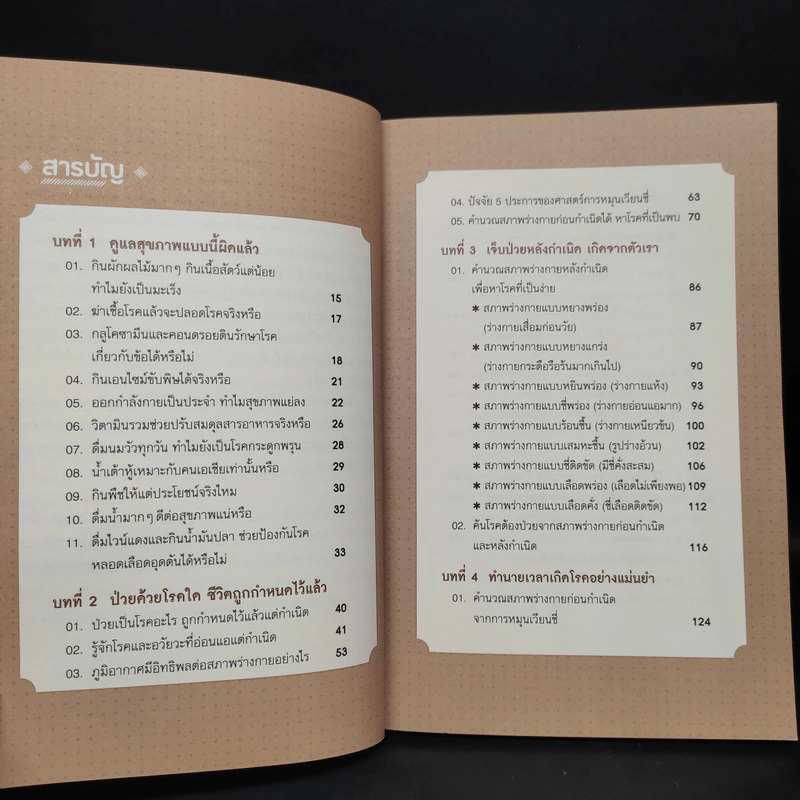 สารบัญ
บทที่ 1 ดูแลสุขภาพแบบนี้ผิดแล้ว
01. กินผักผลไม้มากๆ กินเนื้อสัตว์แต่น้อย
ทำไมยังเป็นมะเร็ง 15
02. ฆ่าเชื้อโรคแล้วจะปลอดโรคจริงหรือ 17
03. กลูโคซามีนและคอนดรอยตินรักษาโรค
เกี่ยวกับข้อได้หรือไม่ 18
04. กินเอนไซม์ขับพิษได้จริงหรือ 21
05. ออกกำลังกายเป็นประจำ ทำไมสุขภาพแย่ลง 22
06. วิตามินรวมช่วยปรับสมดุลสารอาหารจริงหรือ 26
07. ดื่มนมวัวทุกวัน ทำไมยังเป็นโรคกระดูกพรุน 28
08. น้ำเต้าหู้เหมาะกับคนเอเชียเท่านั้นหรือ 29
09. กินพืชให้แต่ประโยชน์จริงไหม 30
10. ดื่มน้ำมากๆ ดีต่อสุขภาพแน่หรือ 32
11. ดื่มไวน์แดงและกินน้ำมันปลา ช่วยป้องกันโรค
หลอดเลือดอุดตันได้หรือไม่ 33
บทที่ 2 ป่วยด้วยโรคใด ชีวิตถูกกำหนดไว้แล้ว
01. ป่วยเป็นโรคอะไร ถูกกำหนดไว้แล้วแต่กำเนิด 40
02. รู้จักโรคและอวัยวะที่อ่อนแอแต่กำเนิด 41
03. ภูมิอากาศมีอิทธิพลต่อสภาพร่างกายอย่างไร 53
04. ปัจจัย 5 ประการของศาสตร์การหมุนเวียนชี่ 63
05. คำนวณสภาพร่างกายก่อนกำเนิดได้ หาโรคที่เป็นพบ 70
บทที่ 3 เจ็บป่วยหลังกำเนิด เกิดจากตัวเรา
01. คำนวณสภาพร่างกายหลังกำเนิด
เพื่อหาโรคที่เป็นง่าย 86
* สภาพร่างกายแบบหยางพร่อง
(ร่างกายเสื่อมก่อนวัย) 87
* สภาพร่างกายแบบหยางแกร่ง
(ร่างกายกระตือรือร้นมากเกินไป) 90
* สภาพร่างกายแบบหยินพร่อง (ร่างกายแห้ง) 93
* สภาพร่างกายแบบชี่พร่อง (ร่างกายอ่อนแอมาก) 96
* สภาพร่างกายแบบร้อนชื้น (ร่างกายเหนียวข้น) 100
* สภาพร่างกายแบบเสมหะชื้น (รูปร่างอ้วน) 102
* สภาพร่างกายแบบชี่ติดขัด (มีชี่คั่งสะสม) 106
* สภาพร่างกายแบบเลือดพร่อง (เลือดไม่เพียงพอ) 109
* สภาพร่างกายแบบเลือดคั่ง (ชี่เลือดติดขัด) 112
02. ค้นโรคต้องป่วยจากสภาพร่างกายก่อนกำเนิด
และหลังกำเนิด 116
บทที่ 4 ทำนายเวลาเกิดโรคอย่างแม่นยำ
01. คำนวณสภาพร่างกายก่อนกำเนิด
จากการหมุนเวียนชี่ 124